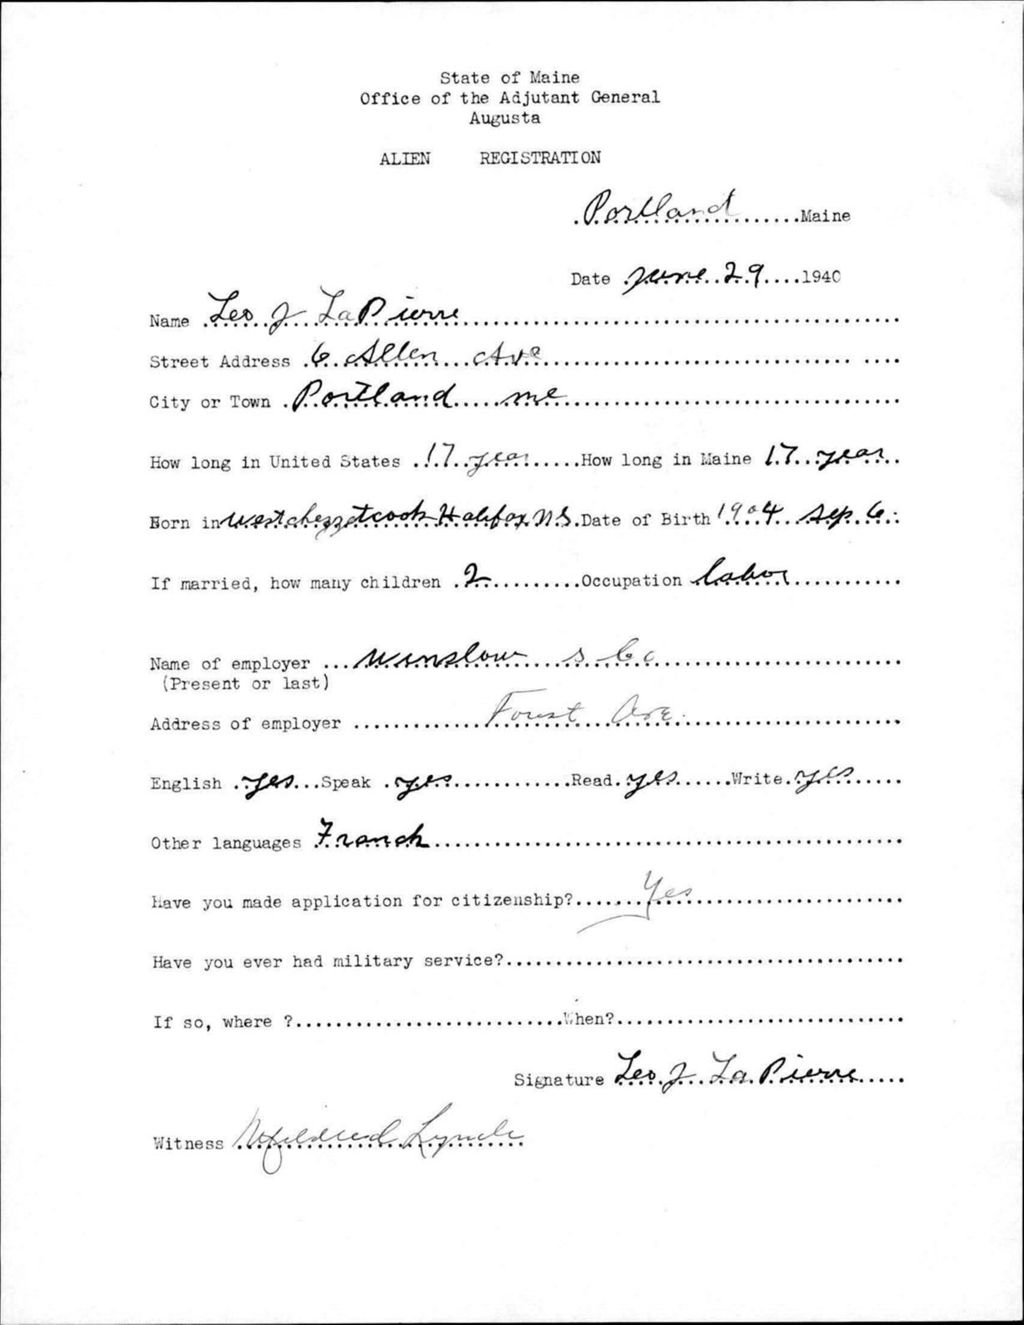 State of Maine
Office of the Adjutant General
Augusta
ALIEN REGISTRATION
Portland Maine
Date June 29 1940
Name Leo J LaPierre
Street Address 6 Allen Ave
City or Town Portland me
How long in United States 17 year How long in Maine 17 year
Born in West chezzetcook Halifax N.S. Date of Birth 1904 Sep. 6
If married, how many children 2 Occupation labor
Name of employer Winslow s Co
(Present or last)
Address of employer Forest Ave.
English yes Speak yes Read yes Write yes
Other languages Franch
Have you made application for citizenship? Yes
Have you ever had military service?
If so, where ? When?
Signature Leo J La Pierre
Witness Mildred Lynch